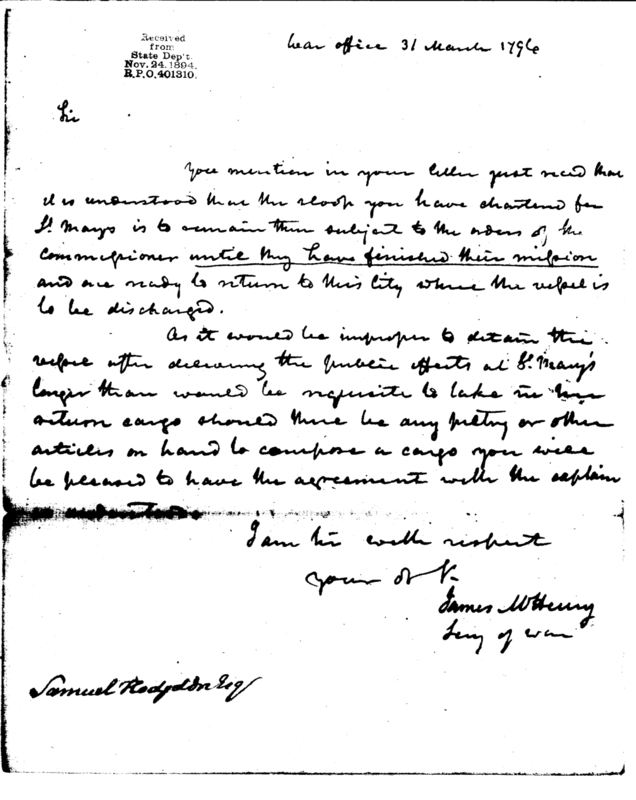 Received
from
State Dep't.
Nov. 24. 1894.
R.P.O. 401310.
War office 31 March 1796
Sir
You mention in your letter just reced that
it is understood that the sloop you have chartered for
St. Marys is to remain then subject to the orders of the
Commissioner until they have finished their mission
and are ready to return to this City where the vessel is
to be discharged.
As it would be improper to detain the
vessel after delivering the public effects at St. Mary's
longer than would be requisite to take in her
return cargo should there be any peltry or other
articles on hand to compose a cargo you will
be pleased to have the agreement with the captain
so
I am Sir with respect
your ob St
James McHenry
Secy of war
Samuel Hodgdon Esq